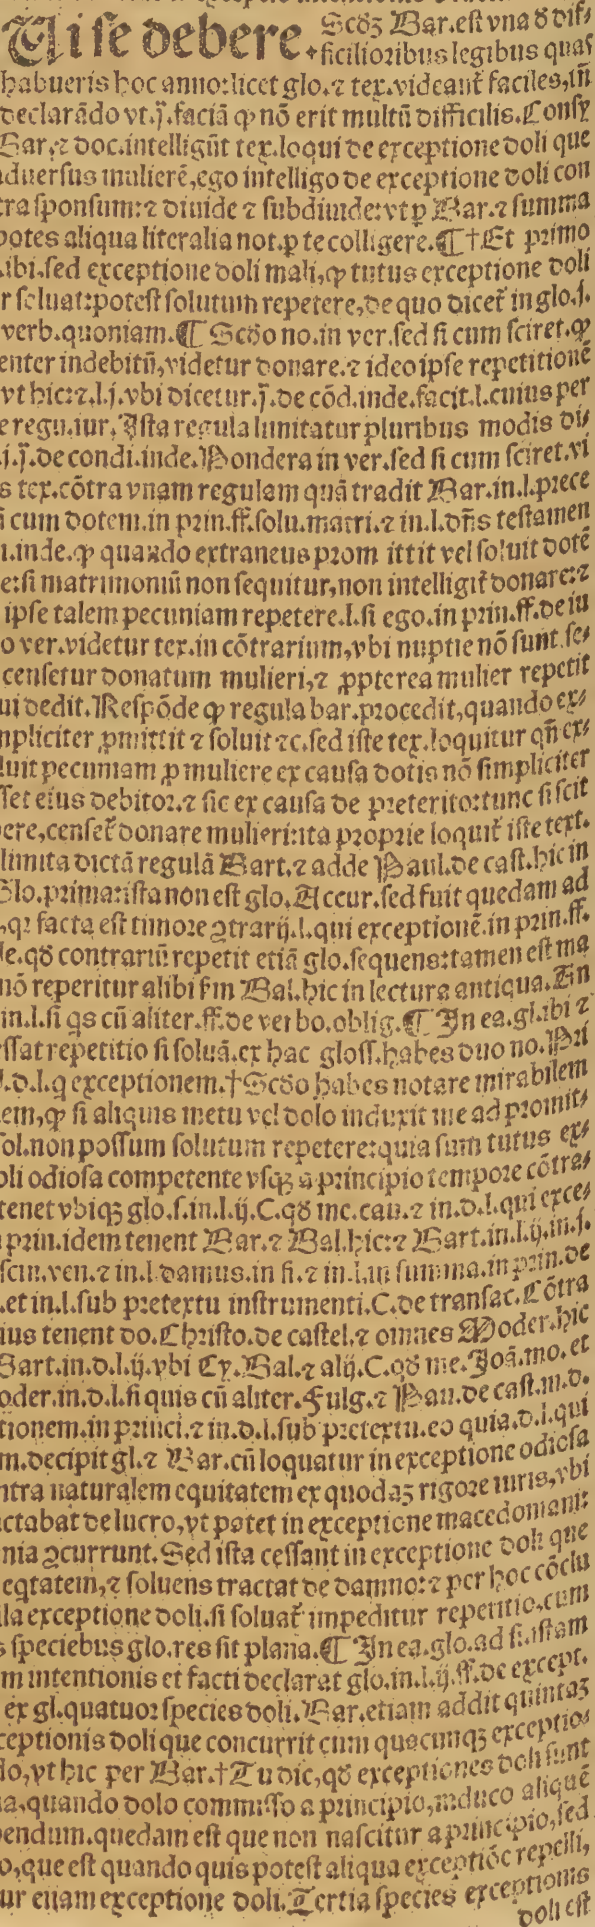 Ui se debere. Scd̄z Bar. est vna d̄ dif⸗
ficilioribus legibus quas
habueris hoc anno: licet glo. ⁊ tex. videant̄ faciles, tn̄
declarādo vt. j̄. faciā ꝙ nō erit multū difficilis.
Bar. ⁊ doc. intelligūt tex. loqui de exceptione doli que
aduersus mulierē, ego intelligo de exceptione doli con
tra sponsum: ⁊ diuide ⁊ subdiuide: vt ꝑ Bar. ⁊ summa
potes aliqua literalia not. ꝑ te colligere. ¶ †Et primo
ibi. sed exceptione doli mali, ꝙ tutus exceptione doli
r soluat: potest solutum repetere, de quo dicet̄ in glo. j.
verb. quoniam. ¶ Scd̄o no. in ver. sed si cum sciret. ꝙ
enter indebitū, videtur donare. ⁊ ideo ipse repetitionē
vt hic: ⁊. l. j. vbi dicetur. j̄. de cōd. inde. facit. l. cuius per
e regu. iur. Ista regula limitatur pluribus modis di⸗
i. j̄. de condi. inde. Pondera in ver. sed si cum sciret. vi
s tex. cōtra vnam regulam quā tradit Bar. in. l. prece
i cum dotem. in prin. ff. solu. matri. ⁊ in. l. dn̄s testamen
i. inde. ꝙ quando extraneus prom ittit vel soluit dotē
e: si matrimoniū non sequitur, non intelligit̄ donare: ⁊
ipse talem pecuniam repetere. l. si ego. in prin. ff. de iu
o ver. videtur tex. in cōtrarium, vbi nuptie nō sunt. se⸗
censetur donatum mulieri, ⁊ ꝓpterea mulier repetit
ui dedit. Respōde ꝙ regula bar. procedit, quando ex⸗
mpliciter ꝓmittit ⁊ soluit ⁊c. sed iste tex. loquitur qn̄ ex⸗
luit pecuniam ꝓ muliere ex causa dotis nō simpliciter
sset eius debitor. ⁊ sic ex causa de preterito: tunc si scit
bere, censet̄ donare mulieri: ita proprie loquit̄ iste text.
limita dictā regulā Bart. ⁊ adde Paul. de cast. hic in
Glo. prima: ista non est glo. Accur. sed fuit quedam ad
, qr̄ facta est timore ꝯtrarij. l. qui exceptionē. in prin. ff.
de. qd̄ contrariū repetit etiā glo. sequens: tamen est ma
nō reperitur alibi s̄m Bal. hic in lectura antiqua. In
in. l. si qs cū aliter. ff. de verbo. oblig. ¶ In ea. gl. ibi ⁊
essat repetitio si soluā. ex hac gloss. habes duo no. Pri
. d. l. q exceptionem. †Scd̄o habes notare mirabilem
em, ꝙ si aliquis metu vel dolo induxit me ad promit⸗
sol. non possum solutum repetere: quia sum tutus ex⸗
oli odiosa competente vsqꝫ a principio tempore cōtra⸗
tenet vbiqꝫ glo. s. in. l. ij. C. qd̄ me. cau. ⁊ in. d. l. qui exce⸗
prin. idem tenent Bar. ⁊ Bal. hic: ⁊ Bart. in. l. ij. in. j.
scin. ven. ⁊ in. l. damus. in fi. ⁊ in. l. summa. in prin. de
. et in. l. sub pretextu instrumenti. C. de transac. Cōtra
ius tenent do. Christo. de castel. ⁊ omnes Moder. hic
Bart. in. d. l. ij. vbi Cy. Bal. ⁊ alij. C. qd̄ me. Joā. mo. et
oder. in. d. l. si quis cū aliter. Fulg. ⁊ Pau. de cast. in. d.
tionem. in princi. ⁊ in. d. l. sub pretextu. eo quia. d. l. qui
m. decipit gl. ⁊ Bar. cū loquatur in exceptione odiosa
ntra naturalem equitatem ex quodaꝫ rigore iuris, vbi
ctabat de lucro, vt patet in exceptione macedoniani:
nia ꝯcurrunt. Sed ista cessant in exceptione doli que
eqtatem, ⁊ soluens tractat de damno: ⁊ per hoc cōclu
lla exceptione doli. si soluat̄ impeditur repetitio, cum
s speciebus glo. res sit plana. ¶ In ea. glo. ad fi. istam
m intentionis et facti declarat glo. in. l. ij. ff. de except.
ex gl. quatuor species doli. Bar. etiam addit quintaꝫ
ceptionis doli que concurrit cum quacunqꝫ exceptio⸗
do, vt hic per Bar. †Tu dic, qd̄ exceptiones doli sunt
a, quando dolo commisso a principio, induco aliquē
bendum. quedam est que non nascitur a principio, sed
o, que est quando quis potest aliqua exceptiōe repelli,
ur etiam exceptione doli. Tertia species exceptionis
doli est